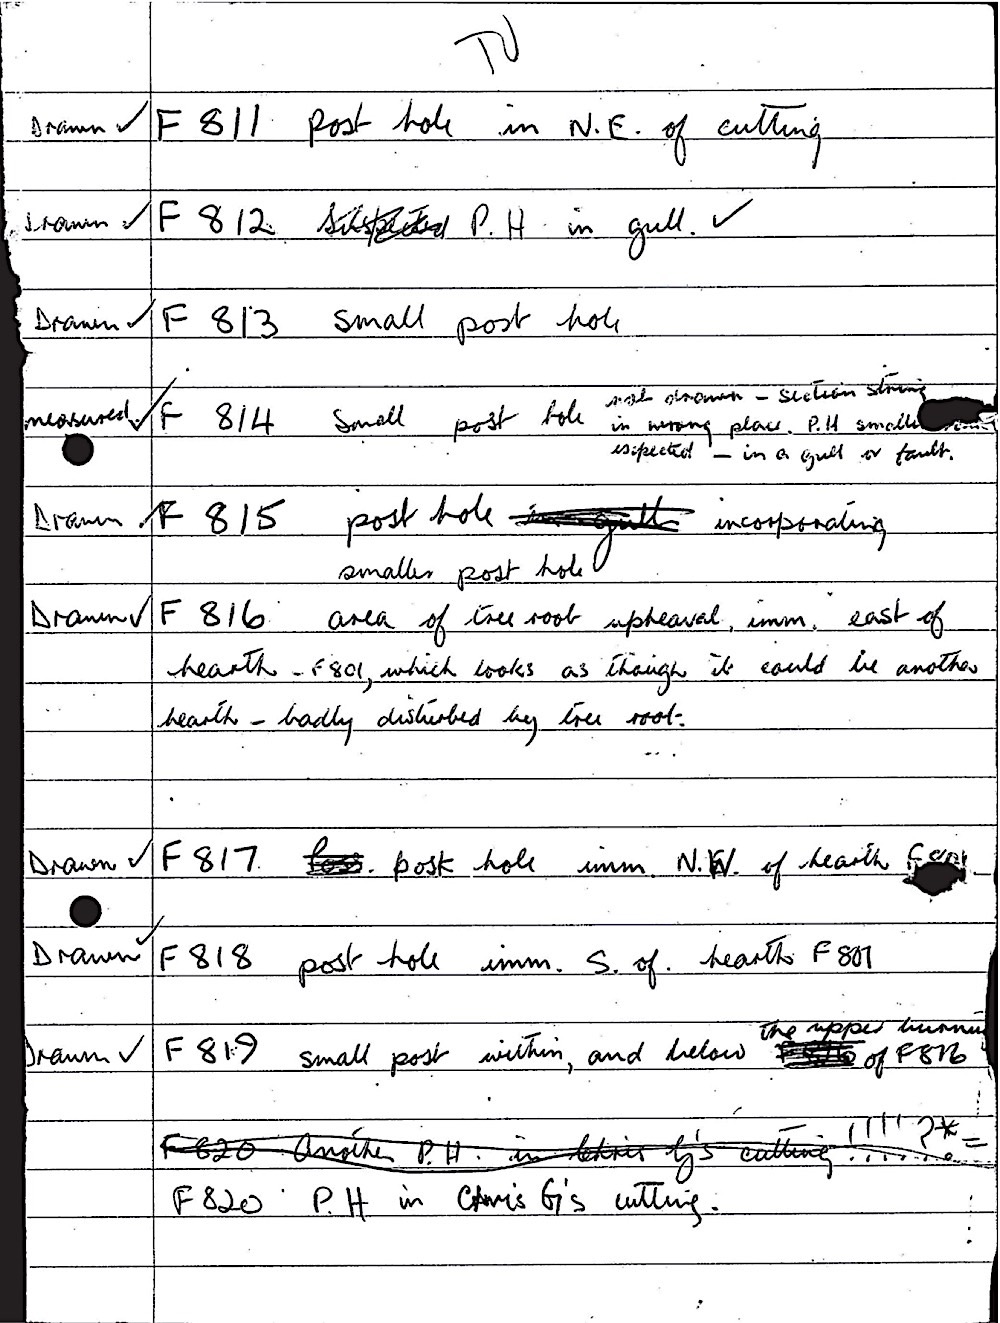 TU
Drawn ✓ F 811 post hole in N.E. of cutting
Drawn ✓ F 812 Suspected P.H in gull. ✓
Drawn ✓ F 813 small post hole
measured ✓ F 814 Small post hole not drawn – section string
in wrong place. P.H smaller
expected – in a gull or fault.
Drawn ✓ F 815 post hole in gull incorporating
smaller post hole
Drawn ✓ F 816 area of tree root upheaval, imm. east of
hearth - F801, which looks as though it could be another
hearth – badly disturbed by tree root.
Drawn ✓ F 817 post hole imm. N.W. of hearth F801
Drawn ✓ F 818 post hole imm. S. of. hearth F801
the upper burning
Drawn ✓ F 819 small post within, and below F816 of F816
F820 Another P.H. in Chris G's cutting !!!! ?* =
F820 P.H in Chris G's cutting.